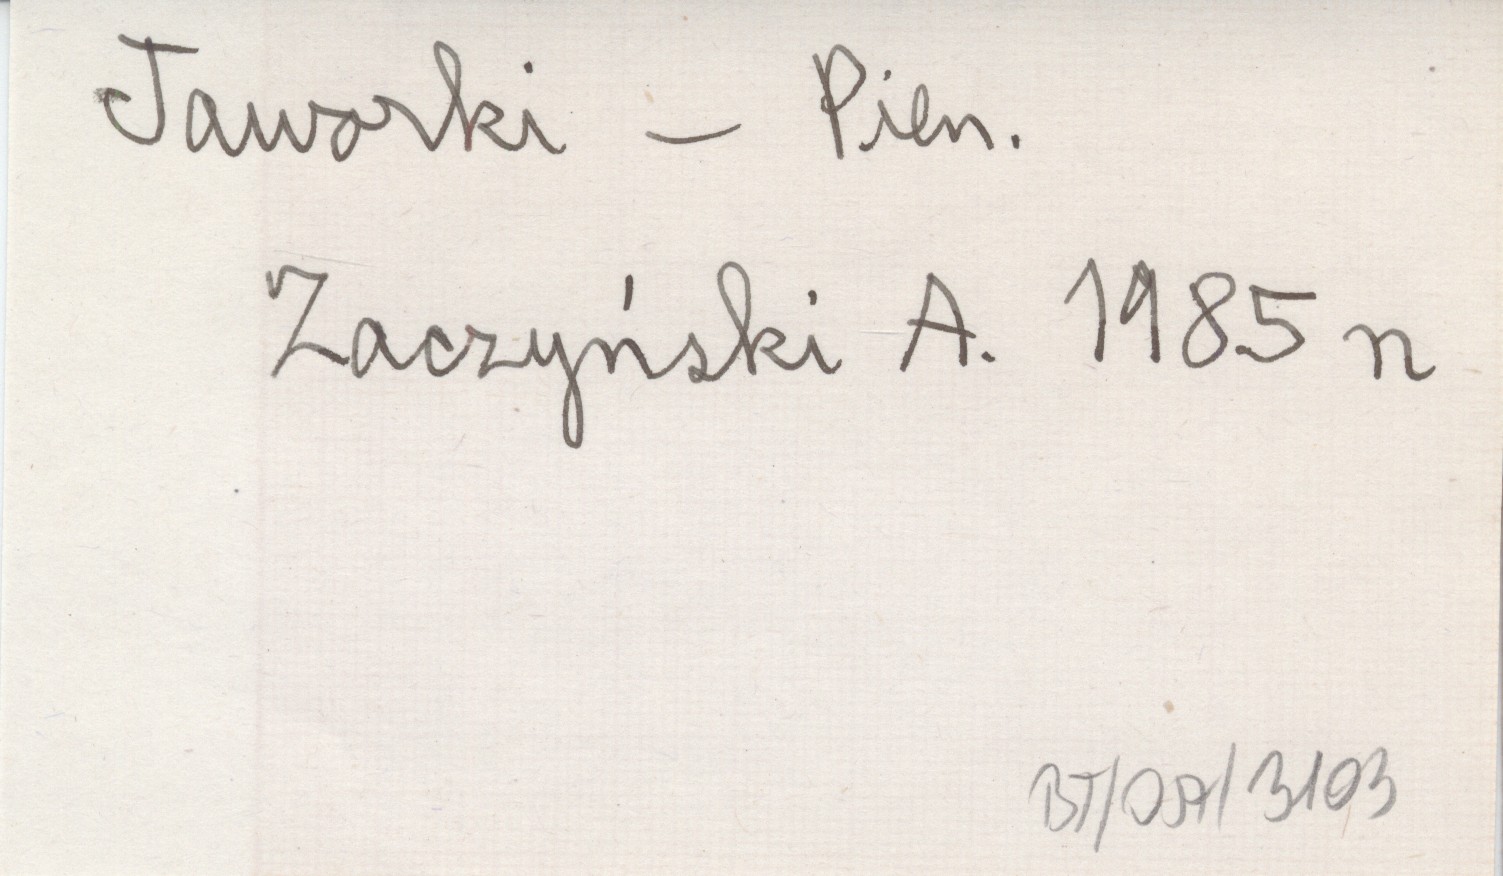 Jaworki – Pien.
Zaczyński A. 1985 n
BT/OSA/3103